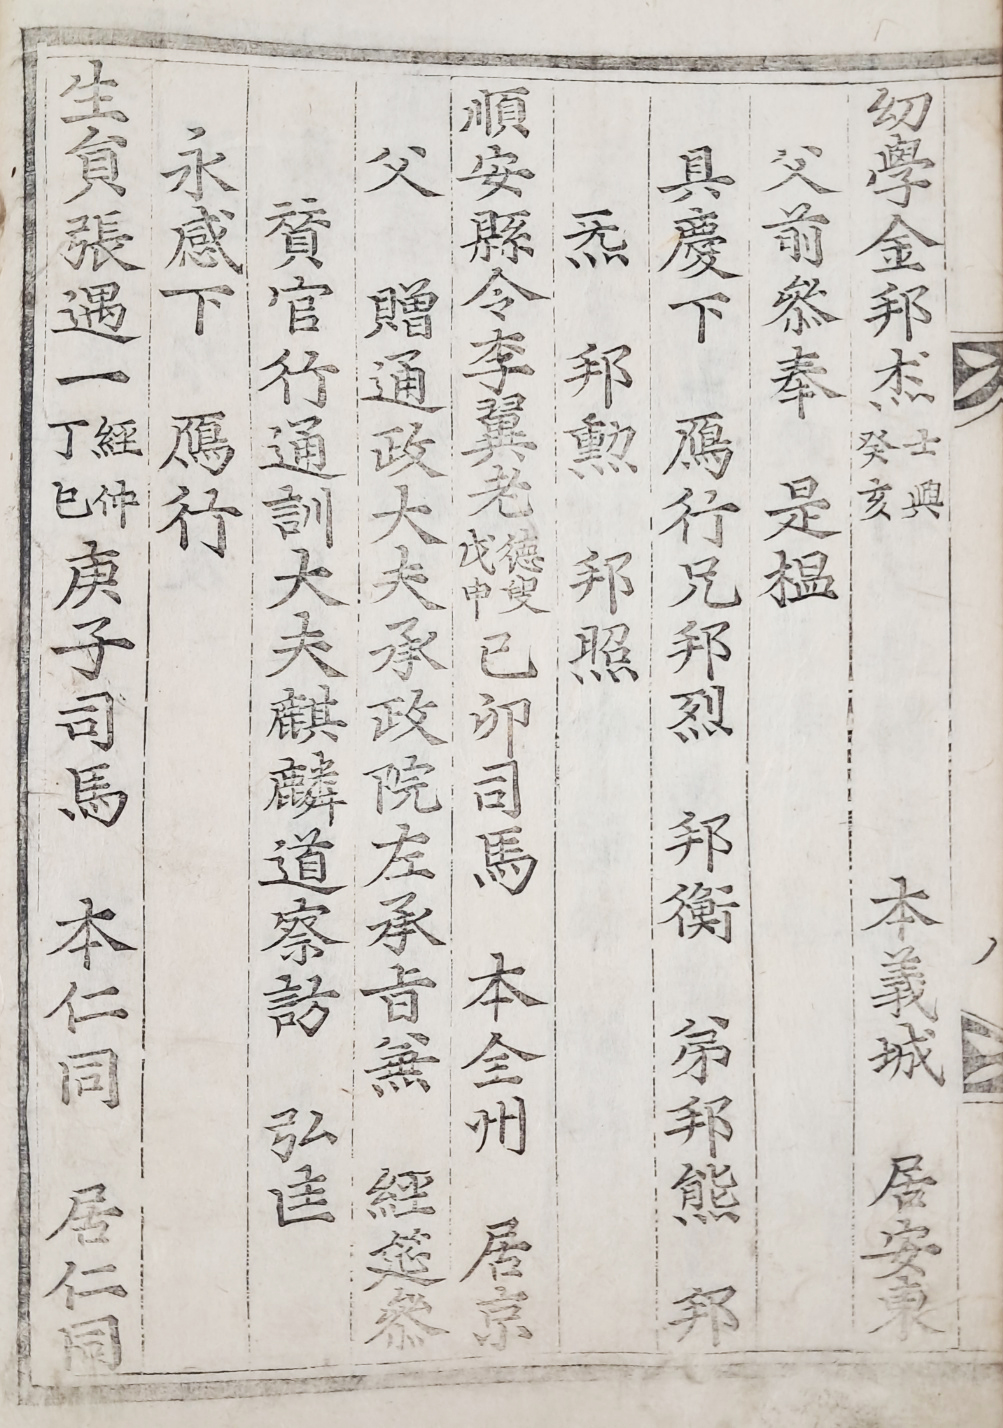 幼學金邦杰士興癸亥 本義城 居安東
父前參奉 是榲
具慶下 鴈行兄邦烈 邦衡 弟邦熊 邦
烝 邦勲 邦照
順安縣令李翼老德叟戊申己卯司馬 本全州 居京
父 贈通政大夫承政院左承旨兼 經筵參
賛官行通訓大夫麒麟道察訪 弘迬
永感下 鴈行
生員張遇一經仲丁巳庚子司馬 本仁同 居仁同